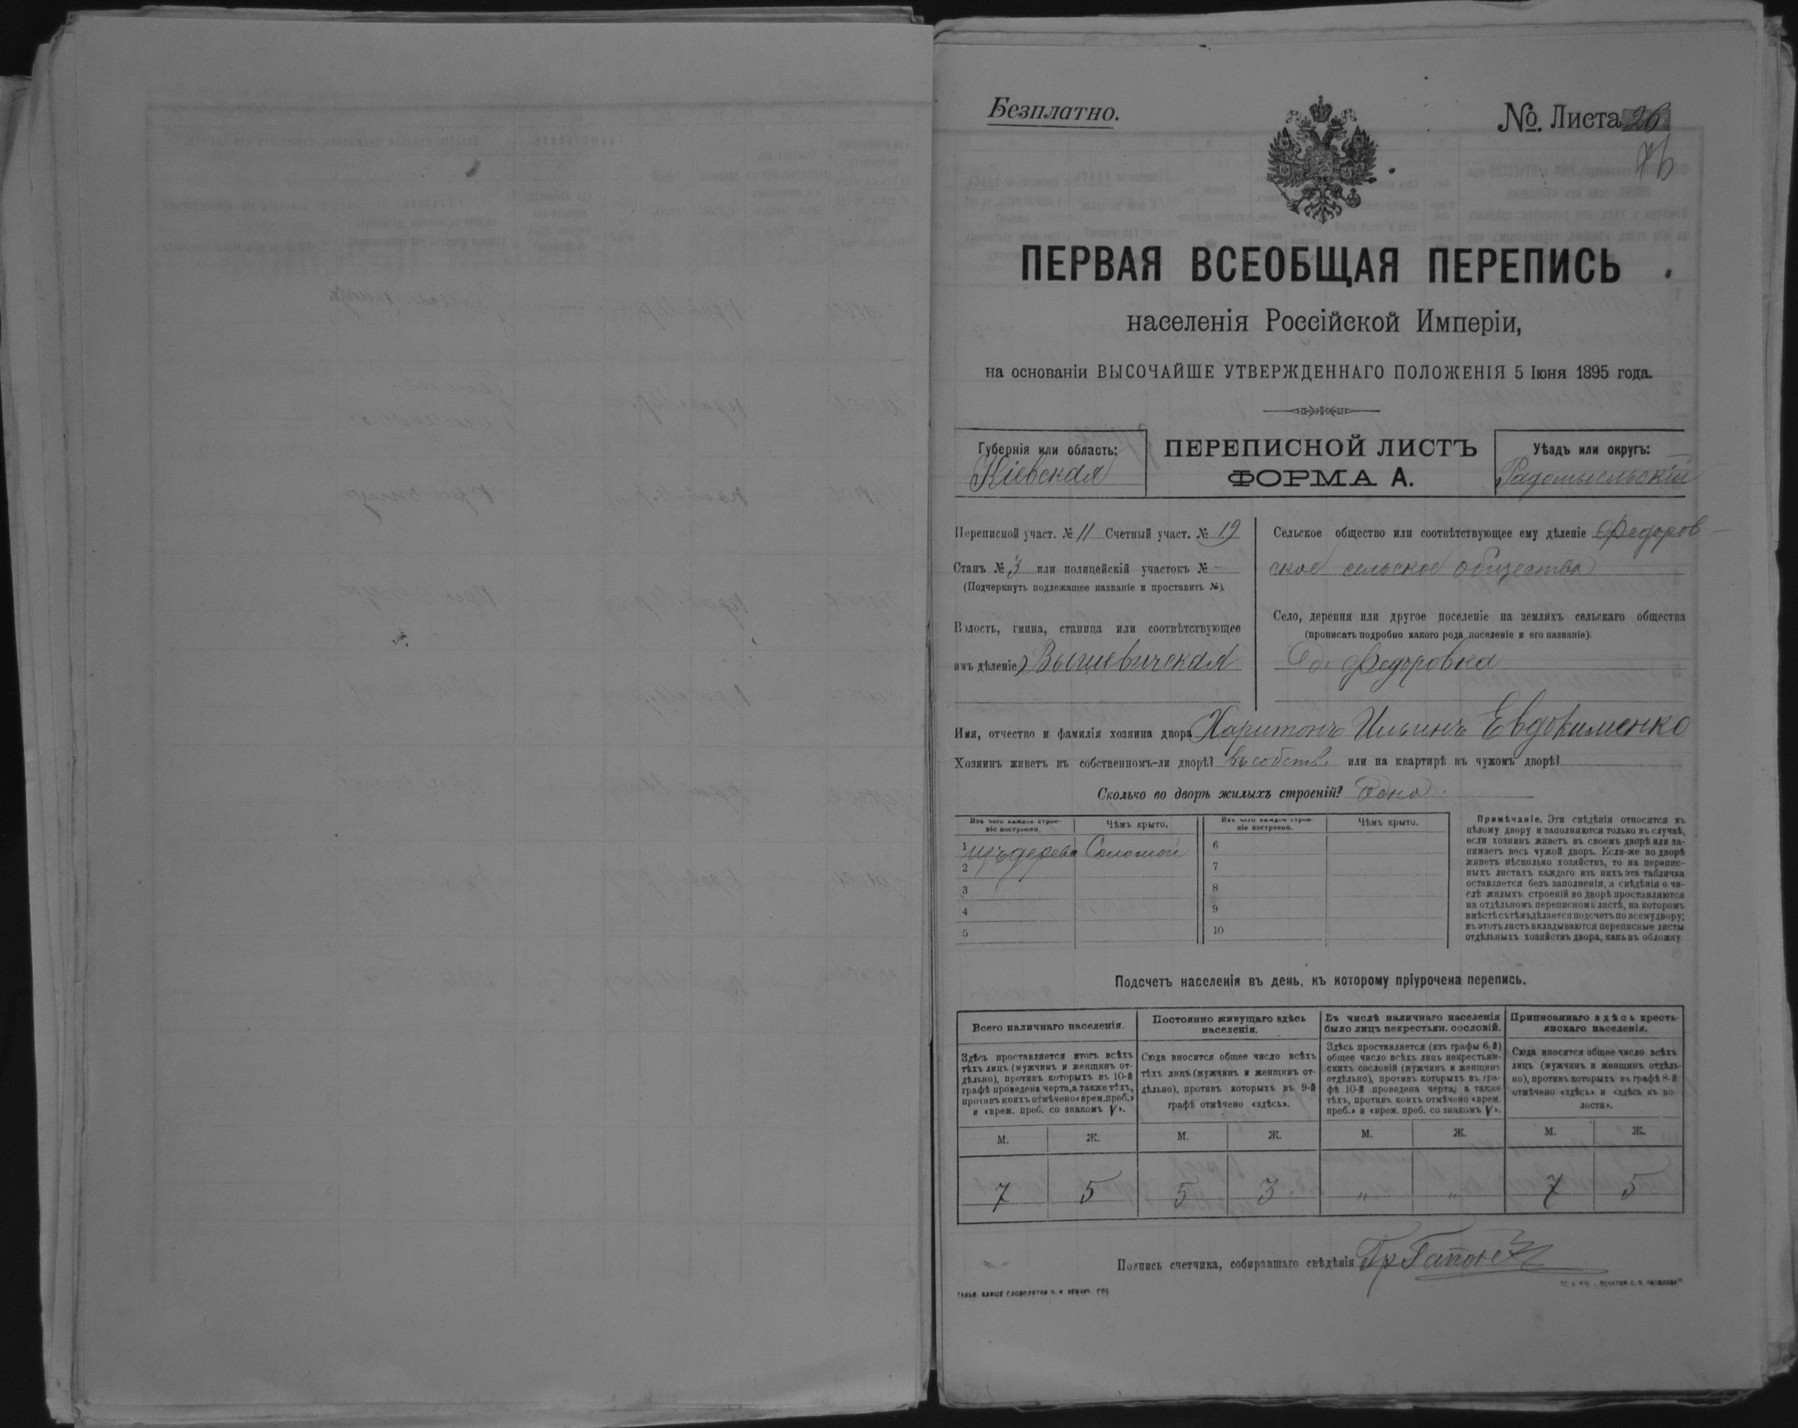 Безплатно.
№. Листа 26
76
ПЕРВАЯ ВСЕОБЩАЯ ПЕРЕПИСЬ
населенія Россійской Имперіи,
на основаніи ВЫСОЧАЙШЕ УТВЕРЖДЕННАГО ПОЛОЖЕНІЯ 5 Іюня 1895 года.
Губернія или область:
Кіевская
ПЕРЕПИСНОЙ ЛИСТЪ
ФОРМА А.
Уѣздъ или округъ:
Радомысльскій
Переписной участ. № 11 Счетный участ. № 19
Станъ № 3 или полицейскій участокъ № -
(Подчеркнуть подлежащее названіе и проставить №).
Волость, гмина, станица или соотвѣтствующее
имъ дѣленіе) Вышевичская
Сельское общество или соотвѣтствующее ему дѣленіе Федоров-
ское сельское общество
Село, деревня или другое поселеніе на земляхъ сельскаго общества
(прописать подробно какого рода поселеніе и его названіе).
Федоровка
Имя, отчество и фамилія хозяина двора Харитонъ Ильинъ Евдокименко
Хозяинъ живетъ въ собственномъ-ли дворѣ? въ собств. или на квартирѣ въ чужомъ дворѣ?
Сколько во дворѣ жилыхъ строеній? Одно.
Изъ чего каждое строе-
ніе построено.
Чѣмъ крыто.
Изъ чего каждое строе-
ніе построено.
Чѣмъ крыто.
1 изъ дерева Соломой
2
3
4
5
6
7
8
9
10
Примѣчаніе. Эти свѣдѣнія относятся къ
цѣлому двору и заполняются только въ случаѣ,
если хозяинъ живетъ въ своемъ дворѣ или за-
нимаетъ весь чужой дворъ. Если-же во дворѣ
живетъ нѣсколько хозяйствъ, то на перепис-
ныхъ листахъ каждаго изъ нихъ эта табличка
оставляется безъ заполненія, а свѣдѣнія о чи-
слѣ жилыхъ строеній во дворѣ проставляются
на отдѣльномъ переписномъ листѣ, на которомъ
вмѣстѣ съ тѣмъ дѣлается подсчетъ по всему двору;
въ этотъ листъ вкладываются переписные листы
отдѣльныхъ хозяйствъ двора, какъ въ обложку
Подсчетъ населенія въ день, къ которому пріурочена перепись.
Всего наличнаго населенія.
Здѣсь проставляется итогъ всѣхъ
тѣхъ лицъ (мужчинъ и женщинъ от-
дѣльно), противъ которыхъ въ 10-й
графѣ проведена черта, а также тѣхъ,
противъ коихъ отмѣчено «врем. преб.»
и «врем. преб. со знакомъ V».
Постоянно живущаго здѣсь
населенія.
Сюда вносится общее число всѣхъ
тѣхъ лицъ (мужчинъ и женщинъ от-
дѣльно), противъ которыхъ въ 9-й
графѣ отмѣчено «здѣсь».
Въ числѣ наличнаго населенія
было лицъ некрестьян. сословій.
Здѣсь проставляется (изъ графы 6-й)
общее число всѣхъ лицъ некрестьян-
скихъ сословій (мужчинъ и женщинъ
отдѣльно), противъ которыхъ въ гра-
фѣ 10-й проведена черта, а также
тѣхъ, противъ коихъ отмѣчено «врем.
преб.» и «врем. преб. со знакомъ V».
Приписаннаго здѣсь кресть-
янскаго населенія.
Сюда вносится общее число всѣхъ
лицъ (мужчинъ и женщинъ отдѣль-
но), противъ которыхъ въ графѣ 8-й
отмѣчено «здѣсь» и «здѣсь въ во-
лости».
М. Ж. М. Ж. М. Ж. М. Ж.
7 5 5 3 „ „ 7 5
Подпись счетчика, собиравшаго свѣдѣнія